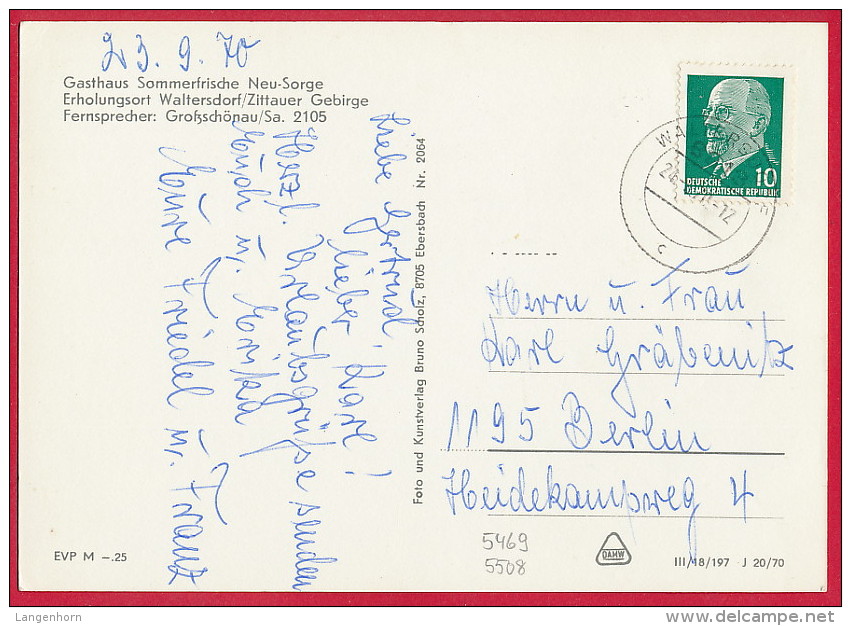 23. 9. 70
Gasthaus Sommerfrische Neu-Sorge
Erholungsort Waltersdorf/Zittauer Gebirge
Fernsprecher: Großschönau/Sa. 2105
Liebe Gertrud!
lieber Karl!
Herzl. Urlaubsgrüße senden
Euch u. Erika
Eure Friedel u. Franz
Foto und Kunstverlag Bruno Scholz, 8705 Ebersbach Nr. 2064
DEUTSCHE
DEMOKRATISCHE REPUBLIK
10
c
Herrn u. Frau
Karl Gräbenitz
1195 Berlin
Heidekampweg 4
5469
5508
EVP M –.25
DAMW
III/18/197 J 20/70
Langenhorn
www.delcampe.net